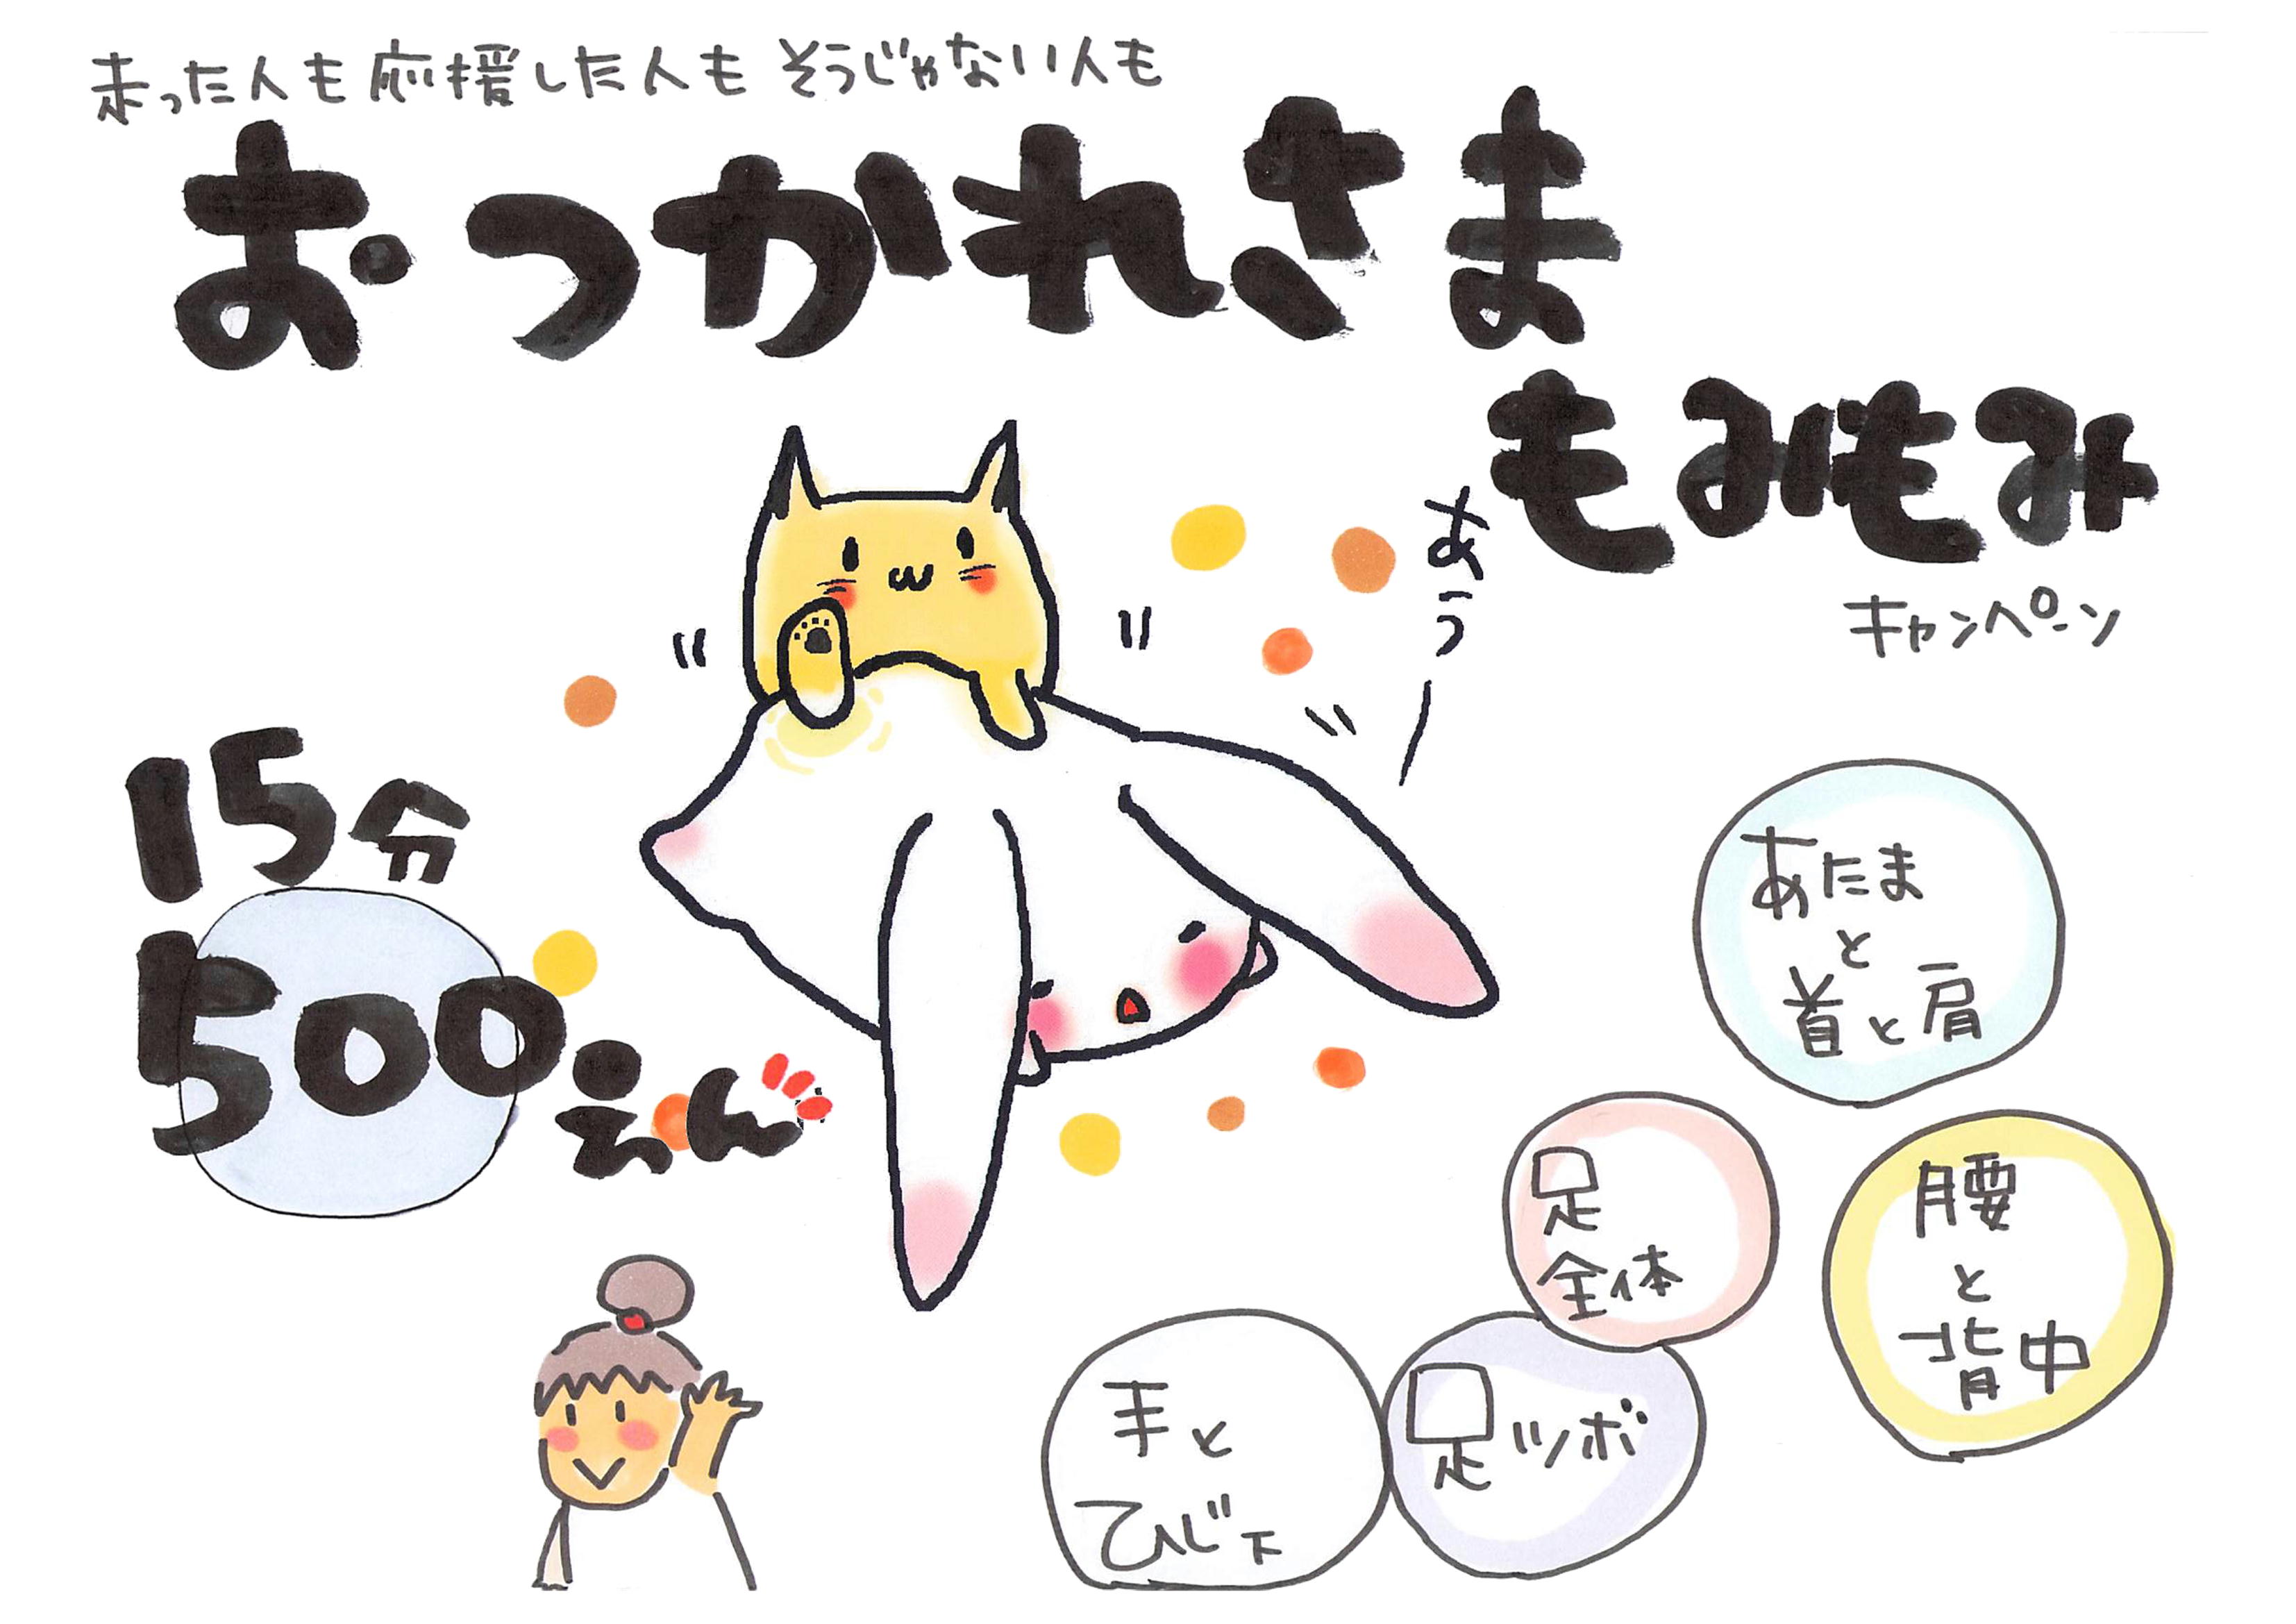 走った人も応援した人も そうじゃない人も
おつかれさま
もみもみ
キャンペーン
あぅー
15分
500えん
あたま
と
首と肩
足
全体
腰
と
背中
手と
ひじ下
足ツボ